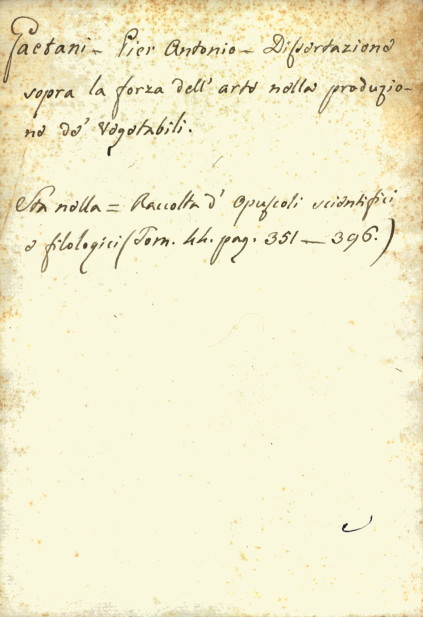 Gaetani - Pier Antonio - Dissertazione
sopra la forza dell' arte nella produzio-
ne de' Vegetabili.
Sta nella = Raccolta d' Opuscoli scientifici
e filologici (Tom. 44. pag. 351 — 396.)